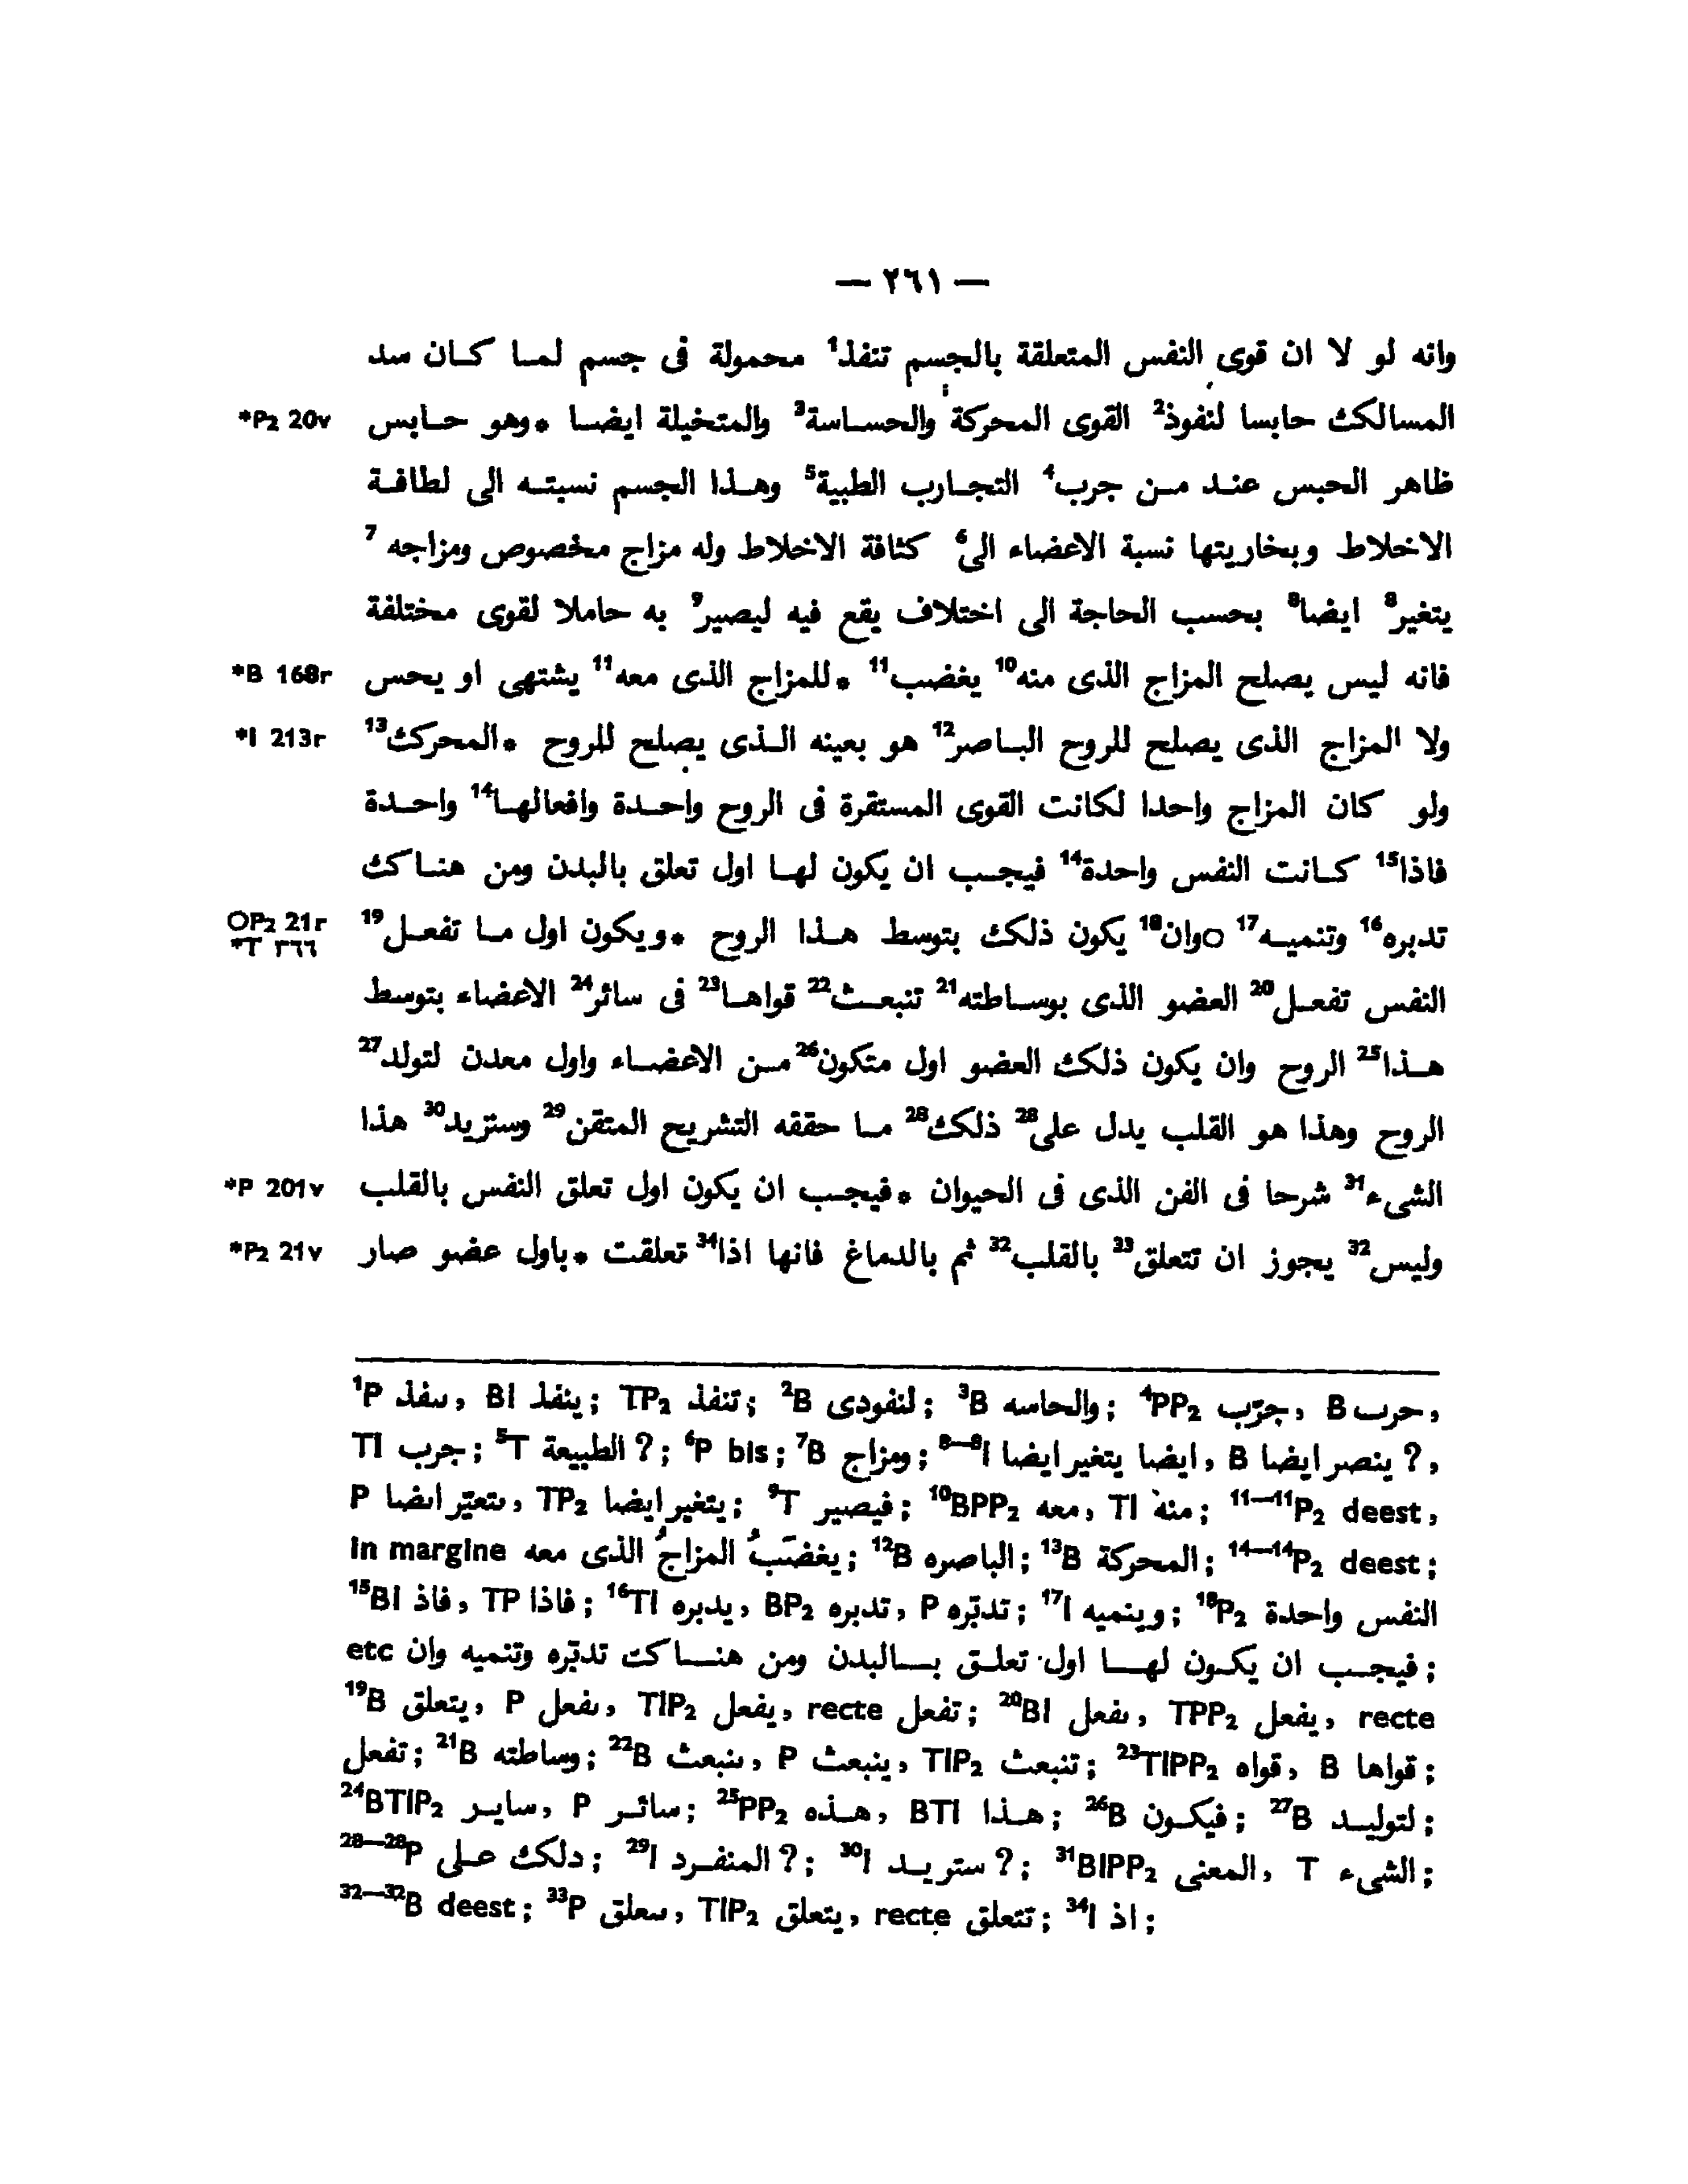 — ٢٦١ —
وانه لو لا ان قوى النفس المتعلقة بالجسم تنفذ¹ محمولة فى جسم لمــا كــان سد
المسالك حابسا لنفوذ² القوى المحركة والحســاسة³ والمتخيلة ايضــا *وهو حــابس *P₂ 20v
ظاهر الحبس عنــد مــن جرب⁴ التجــارب الطبية⁵ وهــذا الجسم نسبتــه الى لطافــة
الاخلاط وبخاريتها نسبة الاعضاء الى⁶ كثافة الاخلاط وله مزاج مخصوص ومزاجه⁷
يتغير⁸ ايضا⁸ بحسب الحاجة الى اختلاف يقع فيه ليصير⁹ به حاملا لقوى مختلفة
فانه ليس يصلح المزاج الذى منه¹⁰ يغضب¹¹ *للمزاج الذى معه¹¹ يشتهى او يحس *B 168r
ولا المزاج الذى يصلح للروح البــاصر¹² هو بعينه الــذى يصلح للروح *المحرك¹³ *I 213r
ولو كان المزاج واحدا لكانت القوى المستقرة فى الروح واحــدة وافعالهــا¹⁴ واحــدة
فاذا¹⁵ كــانت النفس واحدة¹⁴ فيجــب ان يكون لهــا اول تعلق بالبدن ومن هنــاك
تدبره¹⁶ وتنميــه¹⁷ Oوان¹⁸ يكون ذلك بتوسط هــذا الروح *ويكون اول مــا تفعــل¹⁹ OP₂ 21r *T ٣٦٦
النفس تفعــل²⁰ العضو الذى بوســاطته²¹ تنبعــث²² قواهــا²³ فى سائر²⁴ الاعضاء بتوسط
هــذا²⁵ الروح وان يكون ذلك العضو اول متكون²⁶ مــن الاعضــاء واول معدن لتولد²⁷
الروح وهذا هو القلب يدل على²⁸ ذلك²⁸ مــا حققه التشريح المتقن²⁹ وستزيد³⁰ هذا
الشىء³¹ شرحا فى الفن الذى فى الحيوان *فيجــب ان يكون اول تعلق النفس بالقلب *P 201v
وليس³² يجوز ان تتعلق³³ بالقلب³² ثم بالدماغ فانها اذا³⁴ تعلقت *باول عضو صار *P₂ 21v
¹P سفذ, BI ينفذ; TP₂ تنفذ; ²B لنفودى; ³B والحاسه; ⁴PP₂ جرّب, B حرب,
TI جرب; ⁵T الطبيعة ?; ⁶P bis; ⁷B ومزاج; ⁸⁻⁸I ايضا يتغير ايضا, B ينصر ايضا ?,
P ىتعيّر اىضا, TP₂ يتغير ايضا; ⁹T فيصير; ¹⁰BPP₂ معه, TI منه; ¹¹⁻¹¹P₂ deest,
in margine يغضَبُ المزاجُ الذى معه; ¹²B الباصره; ¹³B المحركة; ¹⁴⁻¹⁴P₂ deest;
¹⁵BI فاذ, TP فاذا; ¹⁶TI يدبره, BP₂ تدبره, P تدبّره; ¹⁷I وينميه; ¹⁸P₂ النفس واحدة
فيجــب ان يكــون لهــا اول تعلــق بــالبدن ومن هنــاك تدبّره وتنميه وان etc;
¹⁹B يتعلق, P ىفعل, TIP₂ يفعل, recte تفعل; ²⁰BI ىفعل, TPP₂ يفعل, recte
تفعل; ²¹B وساطته; ²²B ىنبعث, P ينبعث, TIP₂ تنبعث; ²³TIPP₂ قواه, B قواها;
²⁴BTIP₂ سايــر, P سائــر; ²⁵PP₂ هــذه, BTI هــذا; ²⁶B فيكــون; ²⁷B لتوليــد;
²⁸⁻²⁸P دلك عــلى; ²⁹I المنفــرد ?; ³⁰I ستريــد ?; ³¹BIPP₂ المعنى, T الشىء;
³²⁻³²B deest; ³³P ىىعلق, TIP₂ يتعلق, recte تتعلق; ³⁴I اذ;